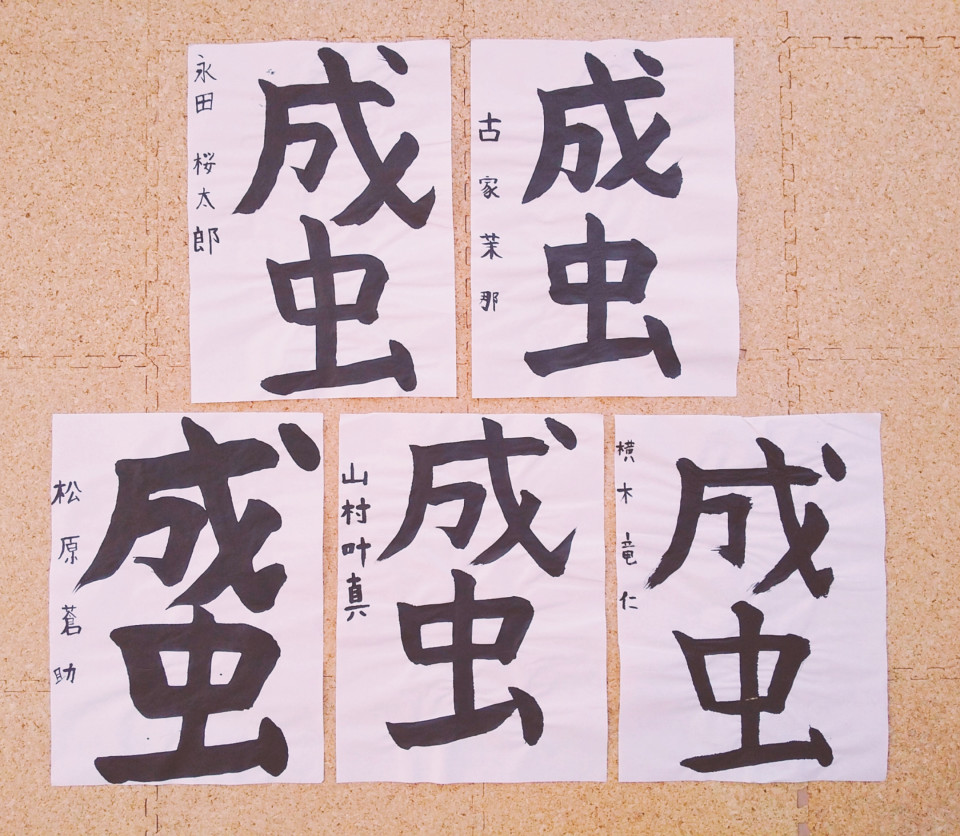 成虫
永田 桜太郎
成虫
古家茉那
成虫
松原蒼助
成虫
山村叶真
成虫
横木竜仁